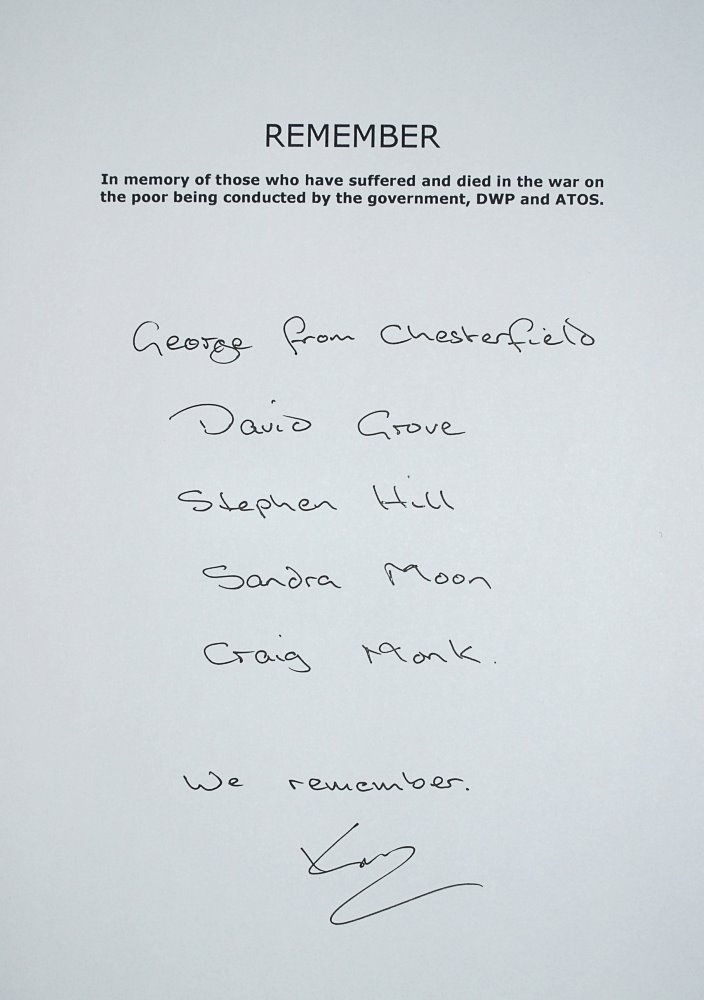 REMEMBER
In memory of those who have suffered and died in the war on
the poor being conducted by the government, DWP and ATOS.
George from Chesterfield
David Grove
Stephen Hill
Sandra Moon
Craig Monk.
We remember.